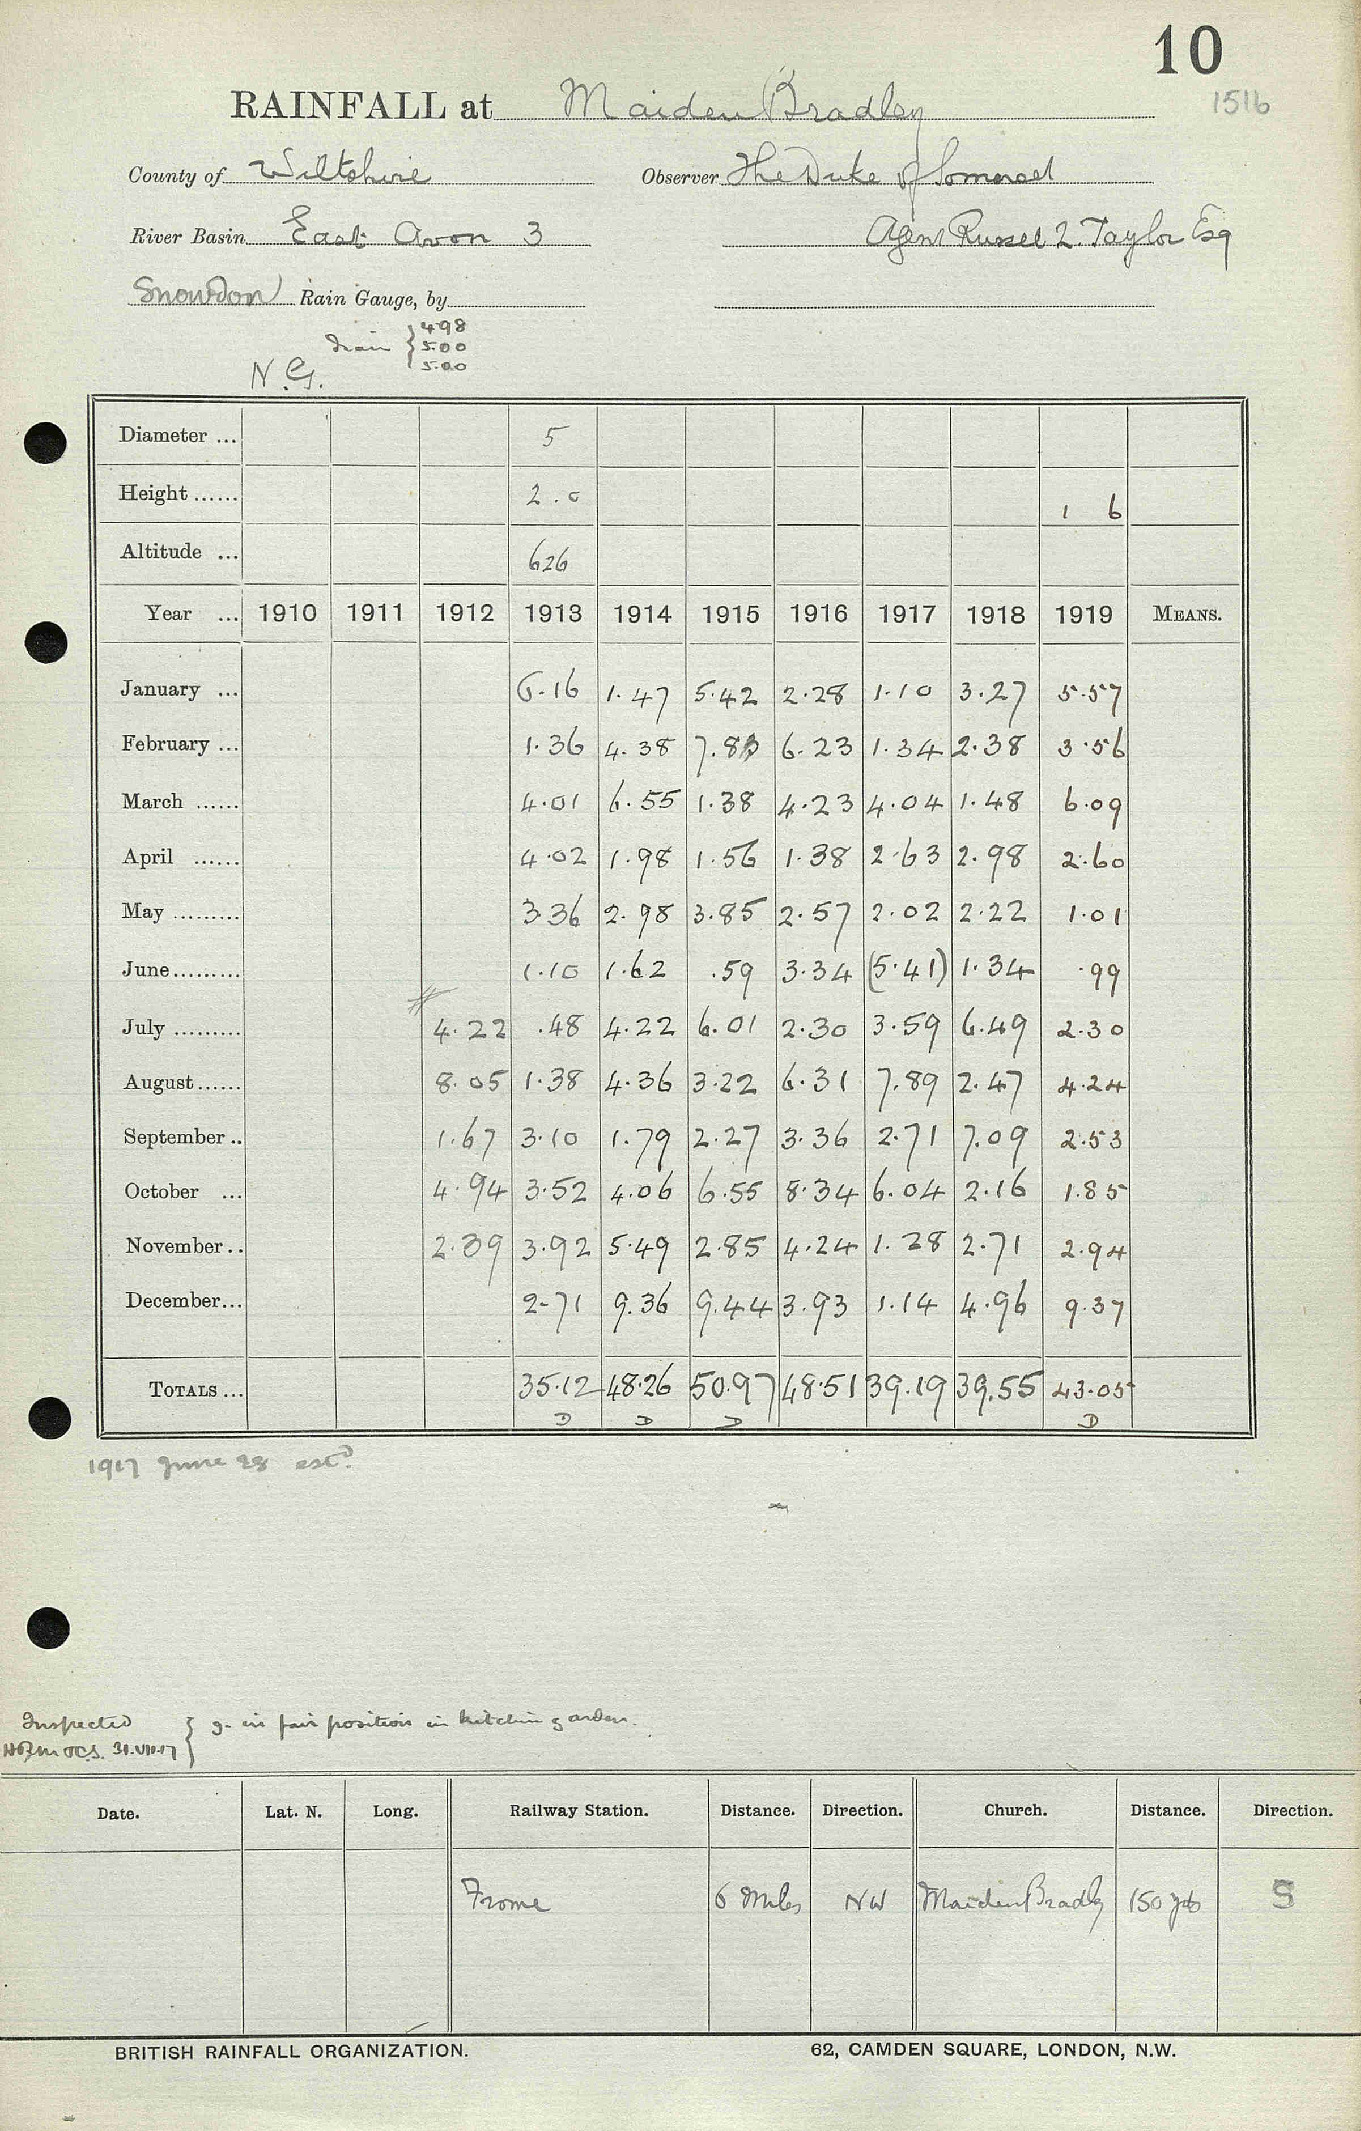 10
RAINFALL at Maiden Bradley 1516
County of Wiltshire Observer The Duke of Somerset
River Basin East Avon 3 Agent Russel L. Taylor Esq
Snowdon Rain Gauge, by
4.98
5.00
5.00
N.G.
Diameter ... 5
Height ...... 2.0 1 6
Altitude ... 626
Year ... 1910 1911 1912 1913 1914 1915 1916 1917 1918 1919 MEANS.
January ... 6.16 1.47 5.42 2.28 1.10 3.27 5.57
February ... 1.36 4.38 7.83 6.23 1.34 2.38 3.56
March ...... 4.01 6.55 1.38 4.23 4.04 1.48 6.09
April ...... 4.02 1.98 1.56 1.38 2.63 2.98 2.60
May ......... 3.36 2.98 3.85 2.57 2.02 2.22 1.01
June......... 1.10 1.62 .59 3.34 (5.41) 1.34 .99
July ......... 4.22 .48 4.22 6.01 2.30 3.59 6.49 2.30
August...... 8.05 1.38 4.36 3.22 6.31 7.89 2.47 4.24
September .. 1.67 3.10 1.79 2.27 3.36 2.71 7.09 2.53
October ... 4.94 3.52 4.06 6.55 8.34 6.04 2.16 1.85
November .. 2.39 3.92 5.49 2.85 4.24 1.28 2.71 2.94
December... 2.71 9.36 9.44 3.93 1.14 4.96 9.37
TOTALS ... 35.12 48.26 50.97 48.51 39.19 39.55 43.05
D D D D
1917 June 28 estd
Inspected g. in fair position in kitchin garden.
31.VII.17
Date. Lat. N. Long. Railway Station. Distance. Direction. Church. Distance. Direction.
Frome 6 Miles NW Maiden Bradly 150 yds S
BRITISH RAINFALL ORGANIZATION. 62, CAMDEN SQUARE, LONDON, N.W.